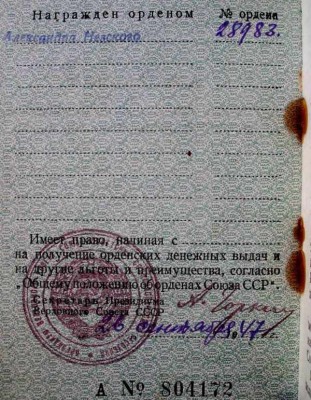 Награжден орденом № ордена
Александра Невского 28983.
Имеет право, начиная с
на получение орденских денежных выдач и
на другие льготы и преимущества, согласно
„Общему положению об орденах Союза ССР".
Секретарь Президиума
Верховного Совета СССР
26 сентября 47 г.
А № 804172